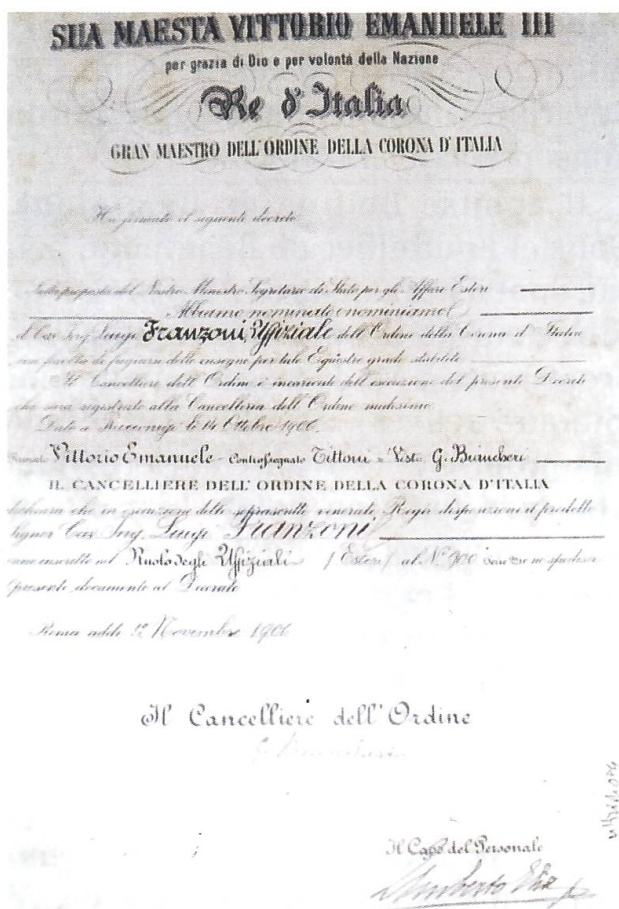 SUA MAESTA VITTORIO EMANUELE III
per grazia di Dio e per volontà della Nazione
Re d'Italia
GRAN MAESTRO DELL'ORDINE DELLA CORONA D'ITALIA
Ha firmato il seguente decreto
Sulla proposta del Nostro Ministro Segretario di Stato per gli Affari Esteri
Abbiamo nominato e nominiamo
il Cav. Ing. Luigi Franzoni, Uffiziale dell'Ordine della Corona d'Italia
con facoltà di fregiarsi delle insegne per tale Equestre grado stabilite
Il Cancelliere dell'Ordine è incaricato dell'esecuzione del presente Decreto
che sarà registrato alla Cancelleria dell'Ordine medesimo.
Dato a Racconigi li 14 Ottobre 1906.
Firmato Vittorio Emanuele - Controssegnato Tittoni - Visto, G. Biancheri
IL CANCELLIERE DELL'ORDINE DELLA CORONA D'ITALIA
dichiara che in esecuzione delle soprascritte venerate Regie disposizioni il predetto
Signor Cav. Ing. Luigi Franzoni
inscritto nel Ruolo degli Uffiziali (Esteri) al N. 900 ne spedisce
presente documento al Decorato
Roma addì 12 Novembre 1906
Il Cancelliere dell'Ordine
Il Capo del Personale